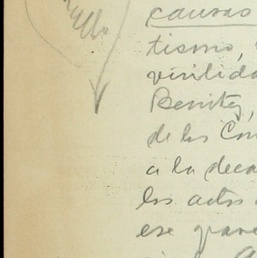 causas
tismo,
virilida
Benitez,
de los Con
a la deca
los actos
ese grav